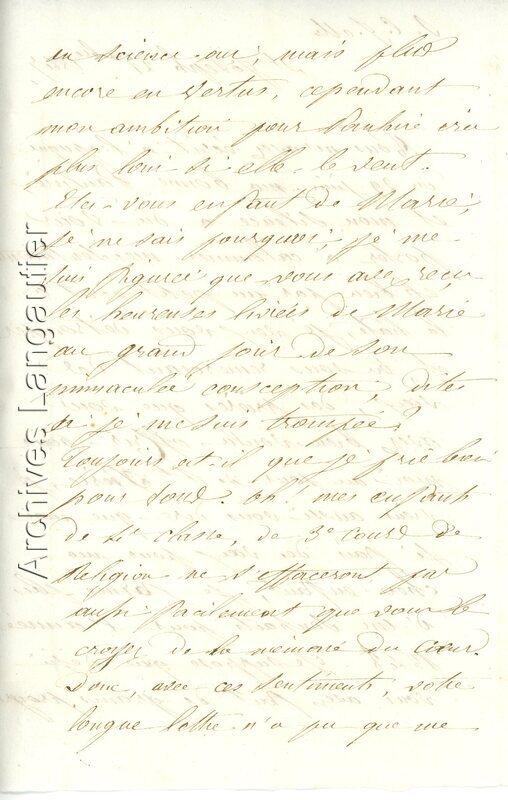 en science oui, mais plus
encore en vertus, cependant
mon ambition pour
plus loin si elle le veut.
Etes-vous enfant de Marie,
je ne sais pourquoi, je me
suis figuré que vous avez reçu
les heureuses livrées de Marie
au grand jour de son
immaculée consception, dites
si je me suis trompée?
Toujours est-il que je prie bien
pour vous. oh! mes enfants
de 4e classe, de 3e cours de
Religion ne s'effaceront pas
aussi facilement que vous le
croyez de la mémoire du cœur.
Donc, avec ces sentiments, votre
longue lettre n'a pu que me
Archives Langautier